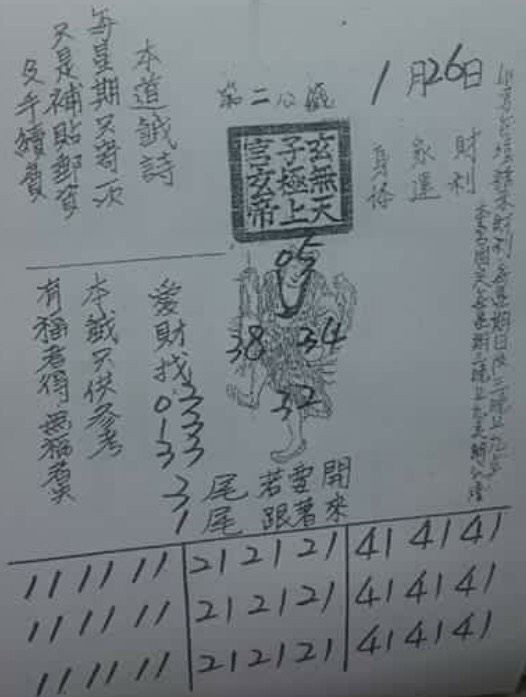 1月26日
財利
家運
身格
第二公籤
玄無天
子極上
宮玄帝
本道籤詩
每星期只寄一次
只是補貼郵資
及手續費
05
38 34
32
愛財找
03
13
33
本籤只供參考
有福者得無福者失
3尾若要開
1尾跟著來
11 11 11 21 21 21 41 41 41
11 11 11 21 21 21 41 41 41
11 11 11 21 21 21 41 41 41